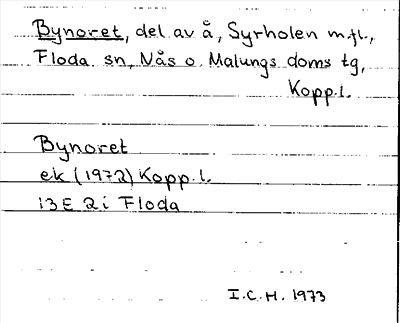 Bynoret, del av å, Syrholen m.fl.,
Floda sn, Nås o. Malungs doms tg,
Kopp.l.
Bynoret
ek (1972) Kopp.l.
13E 2i Floda
I.C.H. 1973